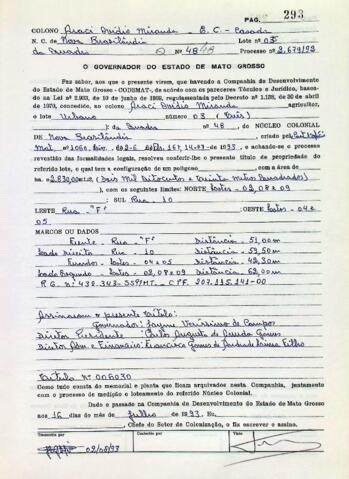 PAG. 293
COLONO Araci Ovidio Miranda - B. C. - Casado
N. C. de Nova Brasilândia Lote n.º 03
Q Nº 48 Processo n.º 2.679/93
O GOVERNADOR DO ESTADO DE MATO GROSSO
Faz saber, aos que o presente virem, que havendo a Companhia de Desenvolvimento
do Estado de Mato Grosso - CODEMAT-, de acordo com os pareceres Técnico e Jurídico, basea-
do na Lei nº regulamentada pelo Decreto nº de 30 de
abril de 1970, concedido, ao colono Araci Ovidio Miranda, agricultor,
o lote Urbano número 03 (três)
nº 48, do NÚCLEO COLONIAL
DE Nova Brasilândia, criado
Mat. nº 1060 14-07-1993, e achando-se o processo
revestido das formalidades legais, resolveu conferir-lhe o presente título de propriedade do
referido lote, o qual tem a configuração de um polígono, com a área de
ha 2.830,00 m2 (Dois Mil Oitocentos e Trinta Metros Quadrados)
, com os seguintes limites: NORTE Lotes - 02, 08 e 09
; SUL Rua - 10
LESTE Rua - "F" ; OESTE Lotes - 04 e
05.
MARCOS OU DADOS
Frente - Rua - "F" Distância - 51,00m
Lado Direito - Rua - 10 Distância - 59,50m
Fundos - Lotes - 04 e 05 Distância - 42,30m
Lado Esquerdo - Lotes - 02, 08 e 09 Distância - 62,00m
R. G. nº 438.343-SSP/MT. - CPF. 207.115.141-00
Assinaram o presente título:
Governador: Jayme Veríssimo de Campos
Diretor Presidente: Carlos Augusto de Arruda Gomes
Diretor Adm. e Financeiro: Francisco Gomes de Andrade Lima Filho
Título Nº 006030
Como tudo consta do memorial e planta que ficam arquivados nesta Companhia, juntamente
com o processo de medição e loteamento do referido Núcleo Colonial.
Dado e passado na Companhia de Desenvolvimento do Estado de Mato Grosso
aos 16 dias do mês de Julho de 1993. Eu,
, Chefe do Setor de Colonização, o fiz escrever e assino.
Transcrito por Conferido por Visto
02/08/93